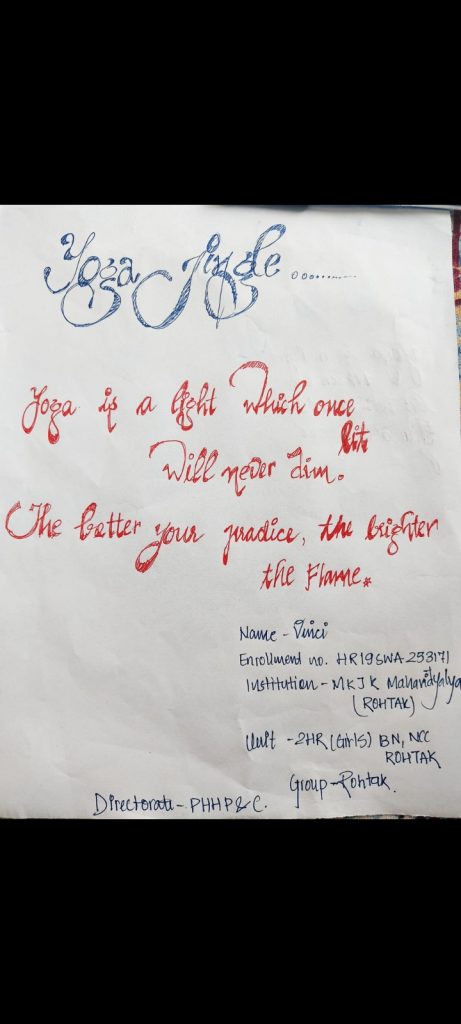 Yoga Jingle............
Yoga is a light which once
lit
will never dim.
The better your practice, the brighter
the Flame.
Name - Vinci
Enrollment no. HR19SWA253171
Institution - MKJK Mahavidyalya
(ROHTAK)
Unit - 2HR (Girls) BN, NCC
ROHTAK
Group - Rohtak.
Directorate - PHHP & C.